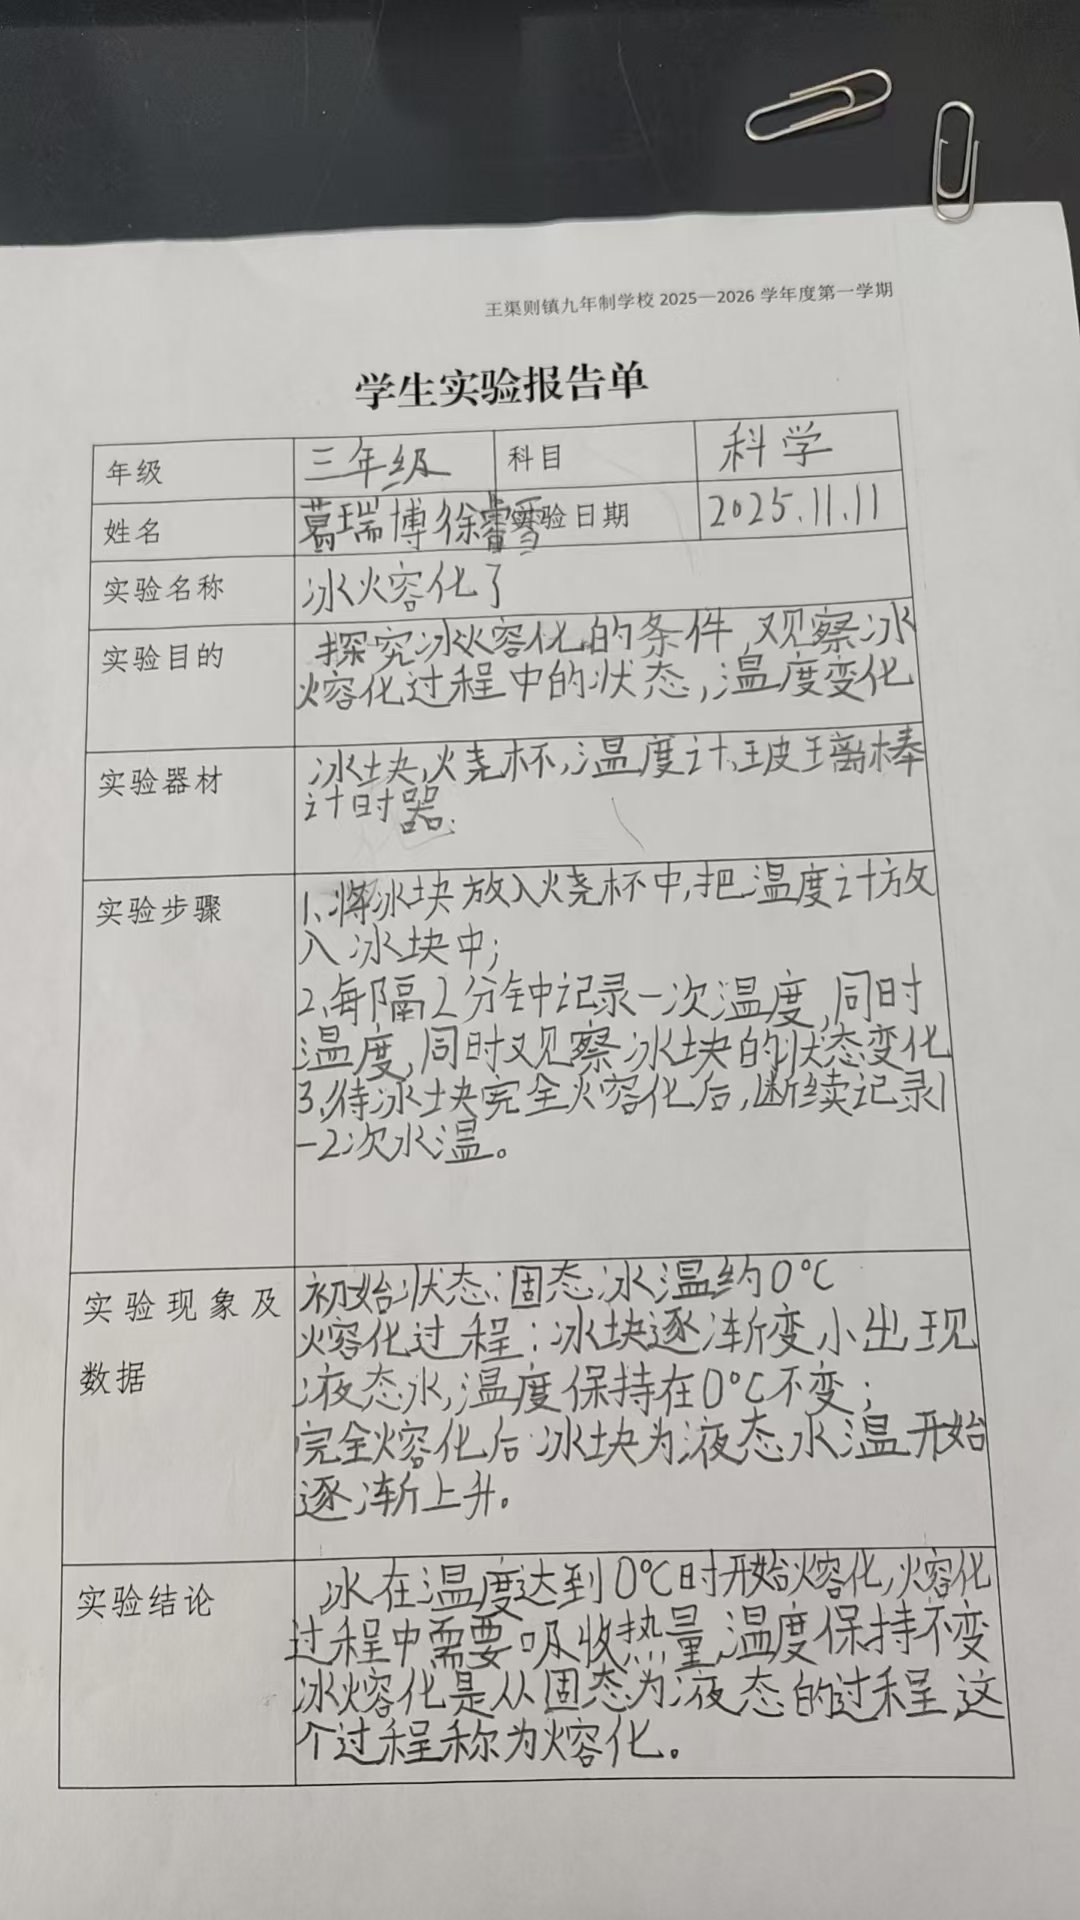 王渠则镇九年制学校 2025—2026 学年度第一学期
学生实验报告单
年级 三年级 科目 科学
姓名 葛瑞博徐睿雪 实验日期 2025.11.11
实验名称 冰熔化了
实验目的 探究冰熔化的条件,观察冰
熔化过程中的状态,温度变化
实验器材 冰块,烧杯,温度计,玻璃棒
计时器.
实验步骤 1、将冰块放入烧杯中,把温度计放
入冰块中;
2、每隔2分钟记录一次温度,同时
温度,同时观察冰块的状态变化
3、待冰块完全熔化后,断续记录1
-2次水温。
实验现象及
数据
初始状态:固态冰温约0℃
熔化过程:冰块逐渐变小出现
液态水,温度保持在0℃不变;
完全熔化后冰块为液态水温开始
逐渐上升。
实验结论 冰在温度达到0℃时开始熔化,熔化
过程中需要吸收热量,温度保持不变
冰熔化是从固态为液态的过程这
个过程称为熔化。